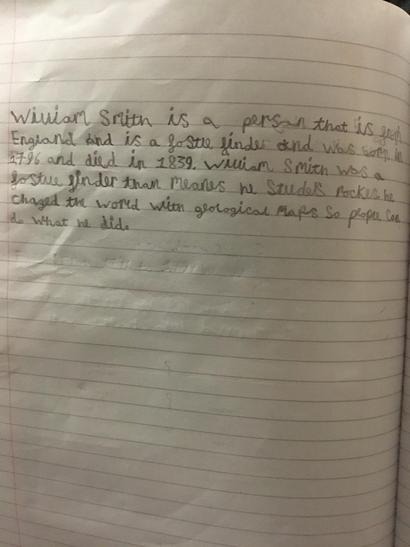 William Smith is a person that is from
England and is a fostle finder and was born in
1796 and died in 1839. William Smith was a
fostue finder than meanes he studels rockes he
chaged the world with geological maps so people can
do what he did.